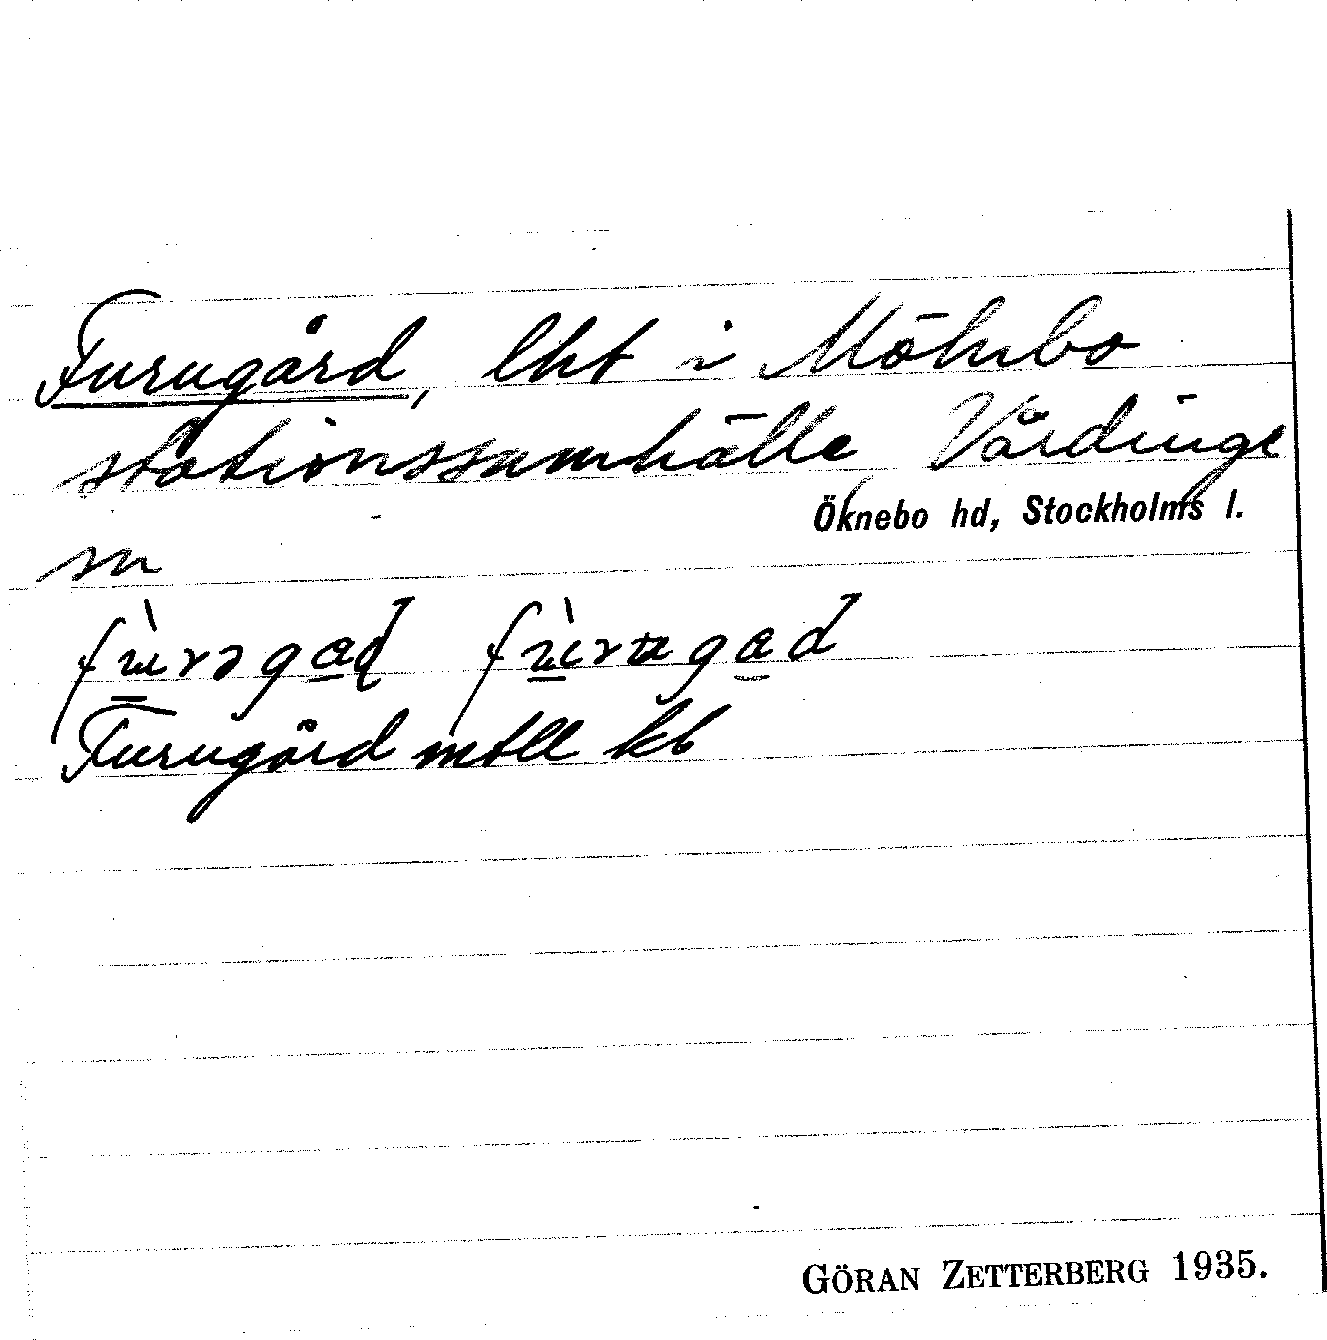 Furugård, lht i Mölnbo
stationssamhälle Vårdinge
Öknebo hd, Stockholms l.
sn
Furugård mtll kb
GÖRAN ZETTERBERG 1935.